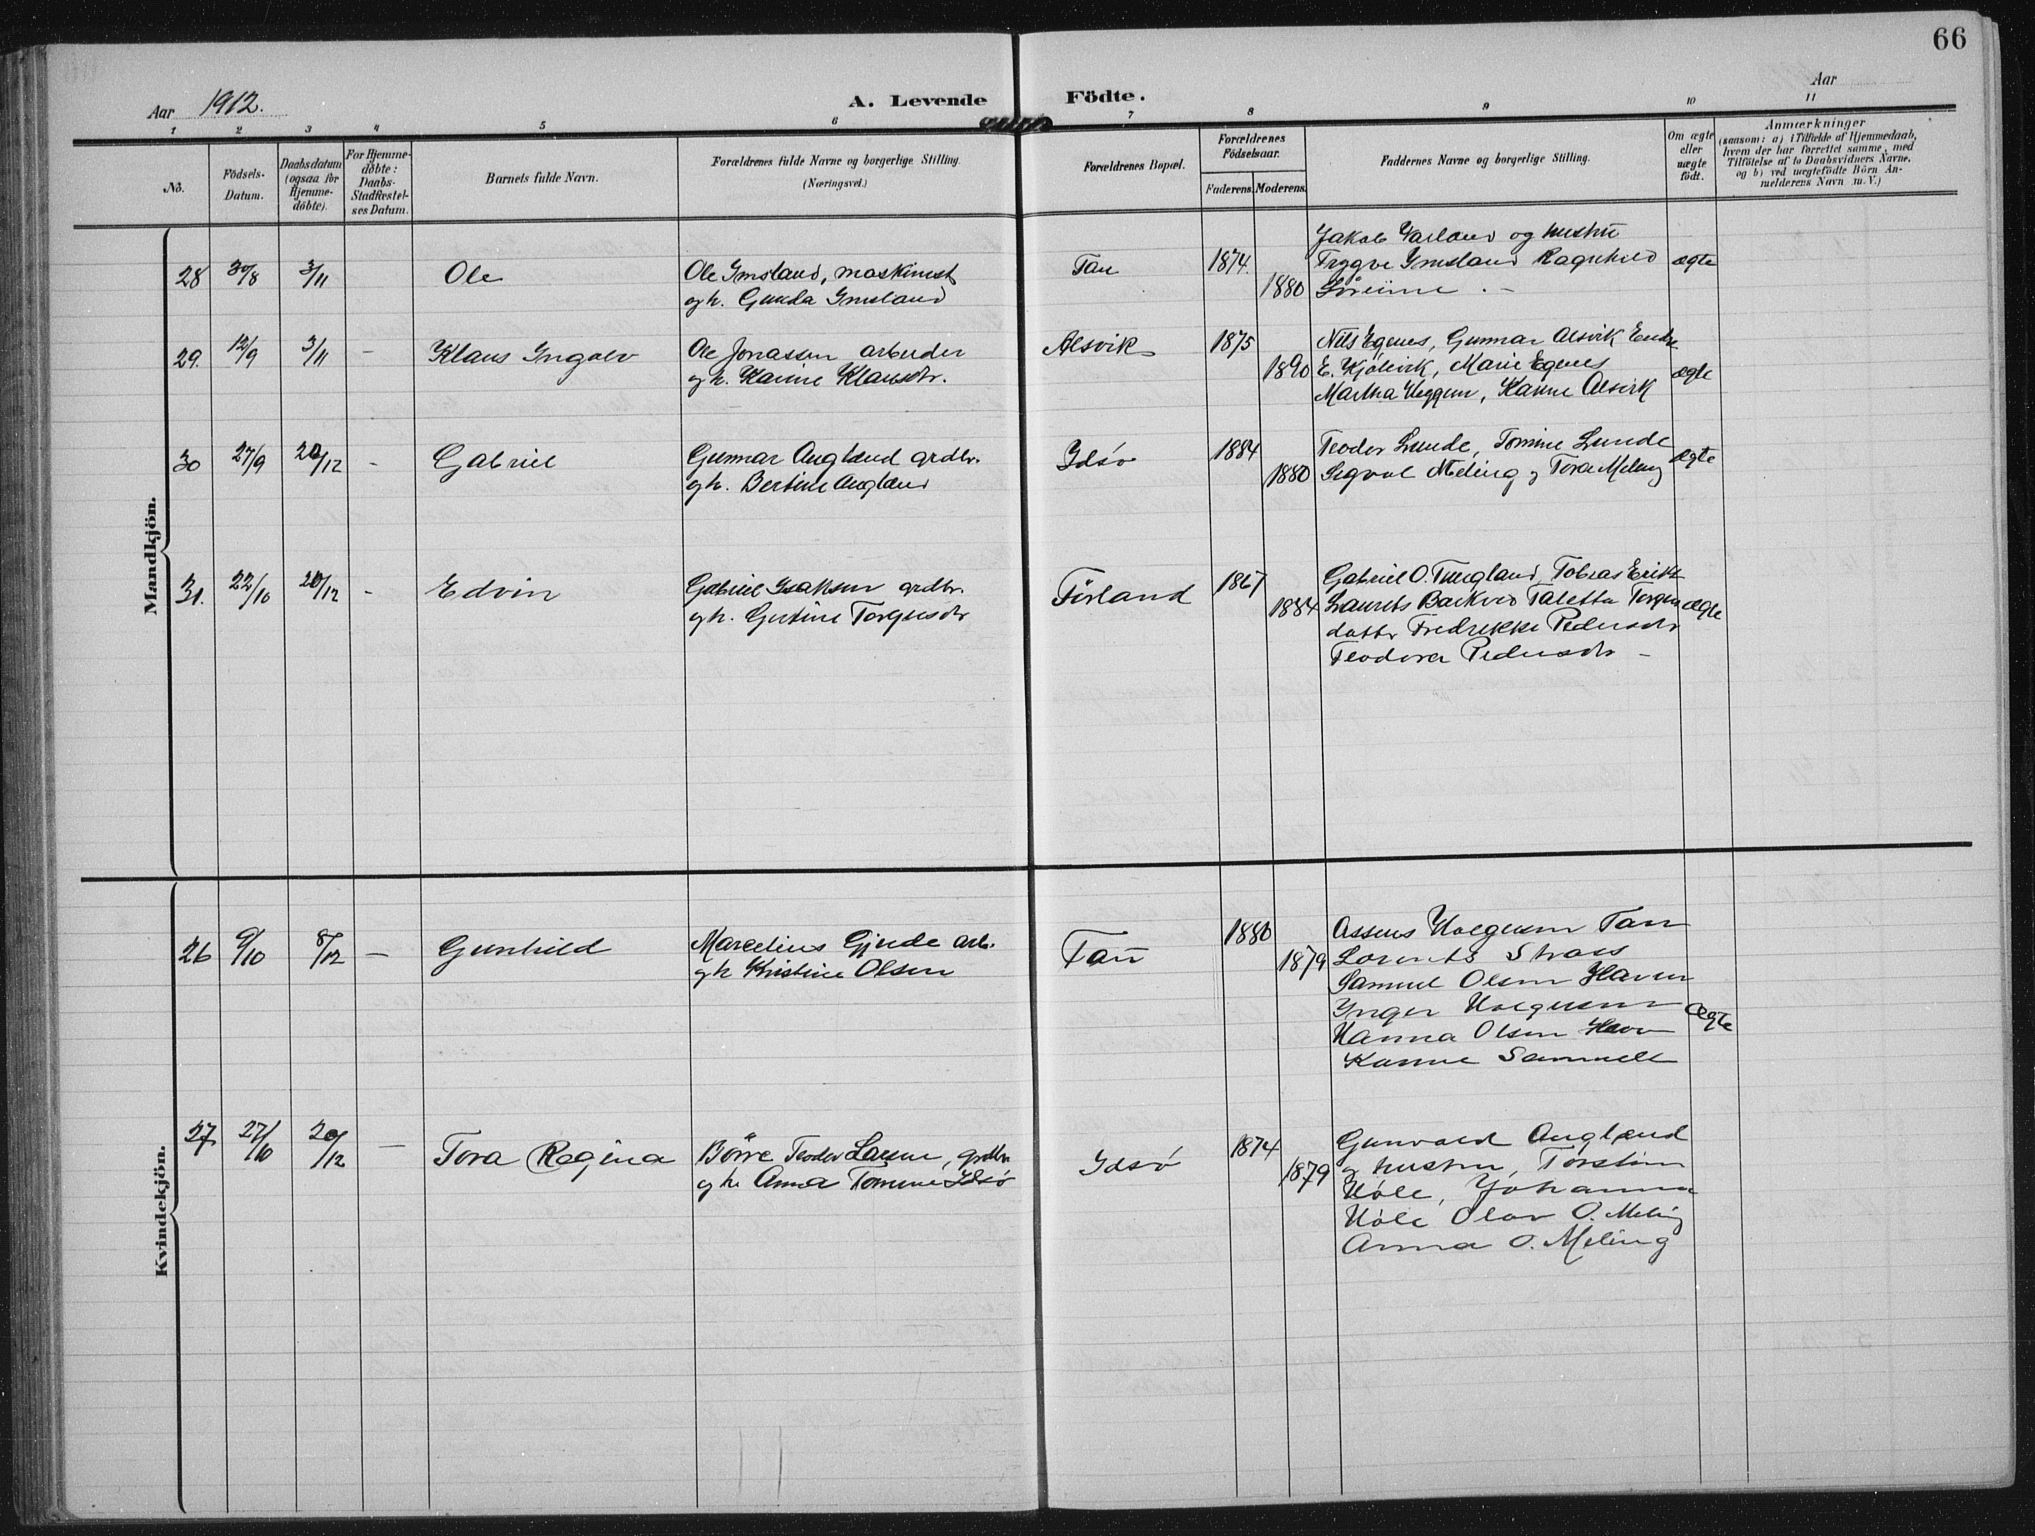 66
Aar 1912.
A. Levende Födte.
Aar
1 2 3 4 5 6 7 8 9 10 11
No.
Födsels-Datum.
Daabsdatum (ogsaa for Hjemme-döbte).
For Hjemme-döbte: Daabs-Stadfæstel-ses Datum.
Barnets fulde Navn.
Forældrenes fulde Navne og borgerlige Stilling.
(Næringsvei.)
Forældrenes Bopæl.
Forældrenes Födselsaar.
Faderens. Moderens.
Faddernes Navne og borgerlige Stilling.
Om ægte eller uægte födt.
Anmærkninger
(saasom: a) i Tilfælde af Hjemmedaab,
hvem der har forrettet samme, med
Tilföielse af to Daabsvidners Navne,
og b) ved uægtefödte Börn An-
melderens Navn m. V.)
Mandkjön.
28 30/8 3/11 Ole
Ole Imsland, maskinist
og h. Gunda Imsland
Tau 1874. 1880
Jakob og hustru
Trygve Imsland Ragnhild
ægte
29. 12/9 3/11 – Klaus Ingolv
Ole Jonassen arbeider
og h. Karine Klausdtr.
Alsvik 1875 1890
Nils Egenes, Gunnar Alsvik Endre
E. Kjölevik, Marie Egenes
Martha Heggem, Karine Alsvik
ægte
30 27/9 20/12 - Gabriel
Gunnar Anglænd grdbr.
og h. Bertine Anglænd
Idsö 1884 1880
Teodor Lunde, Tomine Lunde
Sigval Meling og Tora Meling
ægte
31. 22/10 20/12 - Edvin
Gabriel Isaksen grdbr.
og h. Gertine Torgersdtr
Förland 1867 1884
Gabriel O. Tungland, Tobias Eriks
Laurits Barkved Taletta Torgers
datter Fredrikke Pedersdtr
Teodora Pedersdtr –
ægte
Kvindekjön.
26 9/10 8/12 – Gunhild
Marcelius Gjerde arb.
og h Kristine Olsen
Tau 1880 1879
Assens Holgersen Tau
Lorents
Samuel Olsen
Inger Holgersen
Hanna Olsen
Karine
ægte
27 27/10 20/12 – Tora Regina
Börre Teodor Larsen, grdbr
og h. Anna Tomine Idsö
Idsö 1874 1879
Gunvald Anglænd
og hustru, Torstein
Höle, Johanna
Höle Olav O. Meling
Anna O. Meling